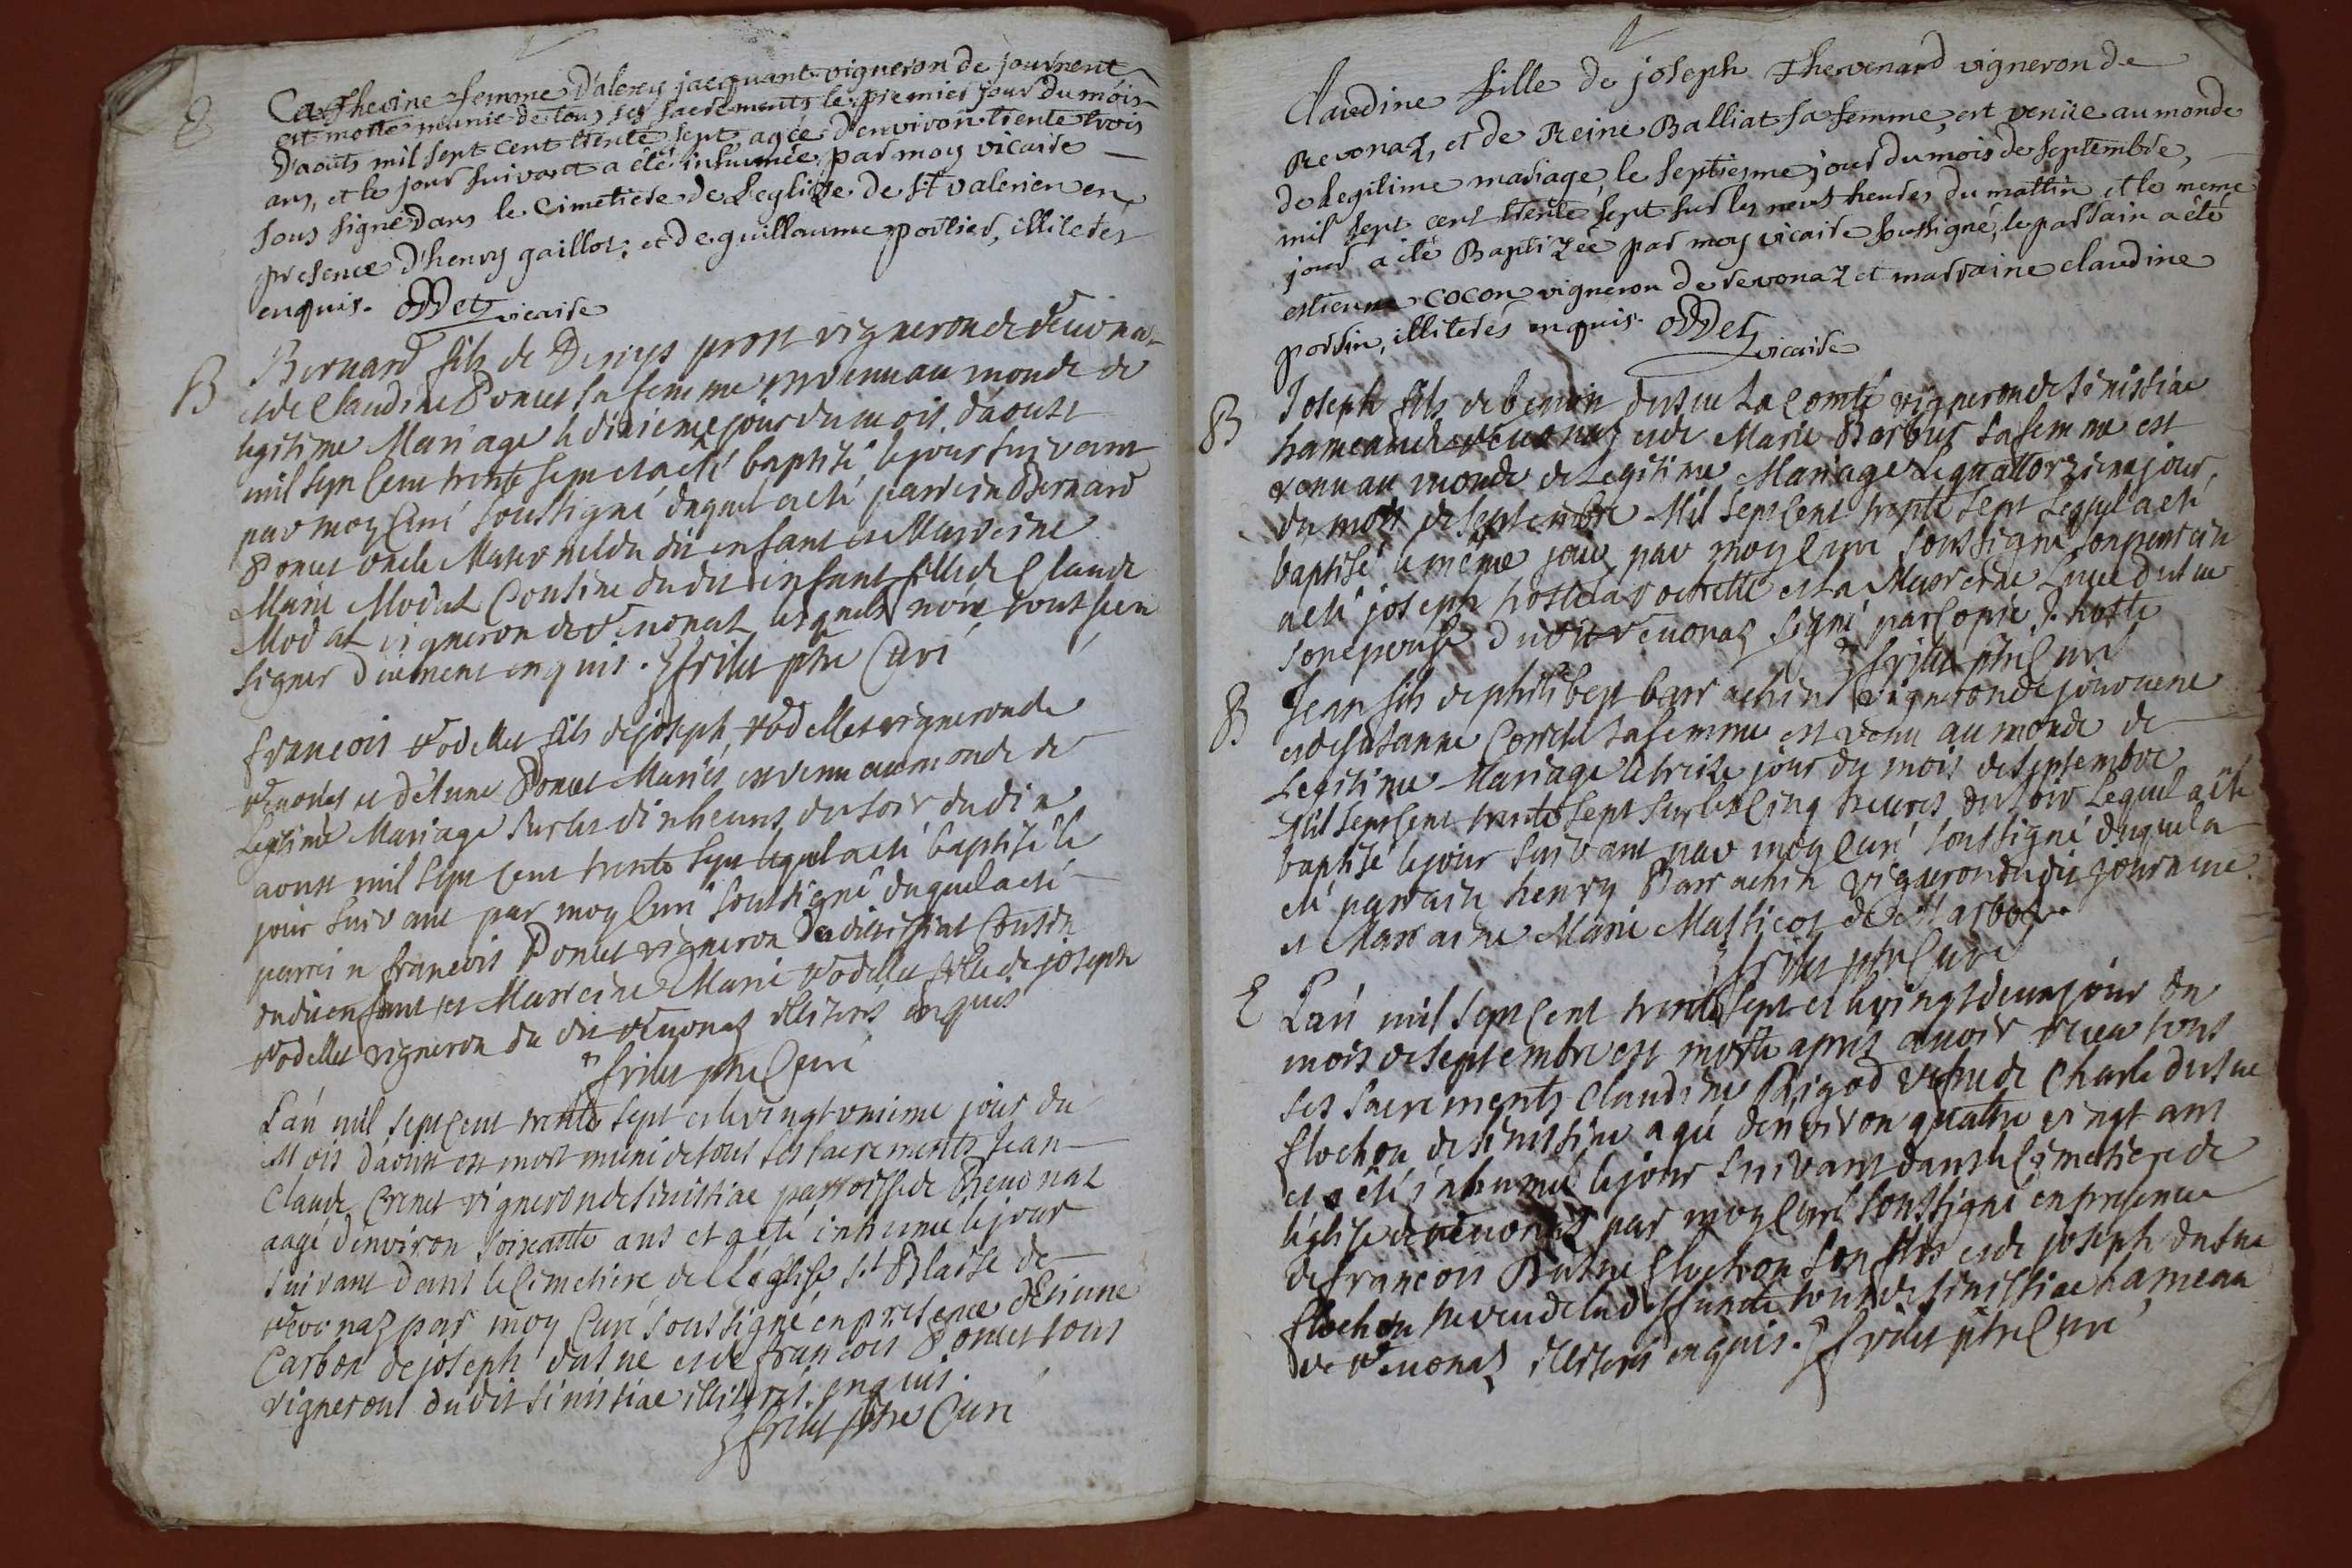 Catherine femme d'alexy jacquant vigneron de journent
est morte munie de tous ses sacrements le premier jour du mois
d'aouts mil sept cent trente sept agée d'environ trente trois
ans, et le jour suivant a été inhumée par moy vicaire
sous signé dans le cimetiere de L'eglize de St valerien en
presence d'henry gaillot, et de guillaume portier, illiterés
enquis. ODDet vicaire
B
Bernard fils de Denys prost vigneron de
et de Claudine Poncet sa femme est venu au monde de
legitime Mariage le dixieme jour du mois d'aoust
mil sept cent trente sept et a eté baptisé le jour suivant
par moy Curé soussigné duquel a eté parrein Bernard
Poncet oncle Maternel du dit enfant et Marreine
Marie Modat Cousine du dit enfant fille de Claude
Modat vigneron de Revonat lesquels n'ont sceu
signer duement enquis. frilet ptre Curé
francois Vodellet fils de joseph Vodellet vigneron de
Revonas et d'Anne Poncet Mariés est venu au monde de
Legitime Mariage sur les dix heures du soir du dix
aoust mil sept cent trente sept lequel a eté baptisé le
jour suivant par moy Curé soussigné duquel a eté
parrein francois Poncet vigneron cousin
du dit enfant et Marreine Marie Vodellet fille de joseph
Vodellet vigneron du dit Revonaz illiterés enquis
frilet ptre Curé
L'an mil sept cent trente sept et le vingt unieme jour du
Mois d'aoust est mort muni de tous ses sacrements Jean
Claude Crenet vigneron de sinissiac parroisse de Revonat
aagé d'environ soixante ans et a eté inhumé le jour
suivant dans le Cimetiere de L'église St Blaise de
Revonaz par moy Curé soussigné en presence d'Etienne
Carbon de joseph dutne et de francois Poncet tous
vignerons du dit sinissiac illiterés enquis.
frilet ptre Curé
Claudine fille de joseph Thevenard vigneron de
Revonaz, et de Reine Balliat sa femme, est venüe au monde
de legitime mariage, le septiesme jour du mois de septembre,
mil sept cent trente sept sur les neuf heures du mattin et le meme
jour a été Baptizée par moy vicaire soussigné, le parrain a été
estienne cocon vigneron de revonaz et marraine claudine
possin, illiterés enquis. ODDet
vicaire
B
Joseph fils de benoit dutne La Comté vigneron de sinissiac
hameau de Revonaz et de Marie Barbier sa femme est
venu au monde de Legitime Mariage Le quattorzieme jour
du mois de septembre Mil sept cent trente sept Lequel a eté
baptisé le même jour par moy Curé soussigné son parrain
a eté joseph et la Marreine dutne
son epouse du dit Revonaz signé par Copie J. hoste
frilet ptre Curé
B
Jean fils de philibept barrachin vigneron de journent
et de susanne sa femme est venu au monde de
Legitime Mariage le treize jour du mois de septembre
Mil sept cent trente sept sur les Cinq heures du soir Lequel a eté
baptisé le jour suivant par moy Curé soussigné duquel a
eté parrain henry Barrachin vigneron du dit journent
et Marraine Marie Massicot de Marboz
frilet ptre Curé
E
L'an mil sept cent trente sept et le vingt deux jour du
mois de septembre est morte aprés avoir receu tous
ses sacrements Claudine Rigod vefve de Charle dutne
flochon de sinissiac agée d'environ quattre vingt ans
et a eté inhumée le jour suivant dans le Cimetiere de
L'eglise de Revonaz par moy Curé soussigné en presence
de francois Dutne flochon son fils et de joseph dutne
flochon neveu de la deffuncte tous de sinissiac hameau
de Revonaz illiterés enquis. frilet ptre Curé